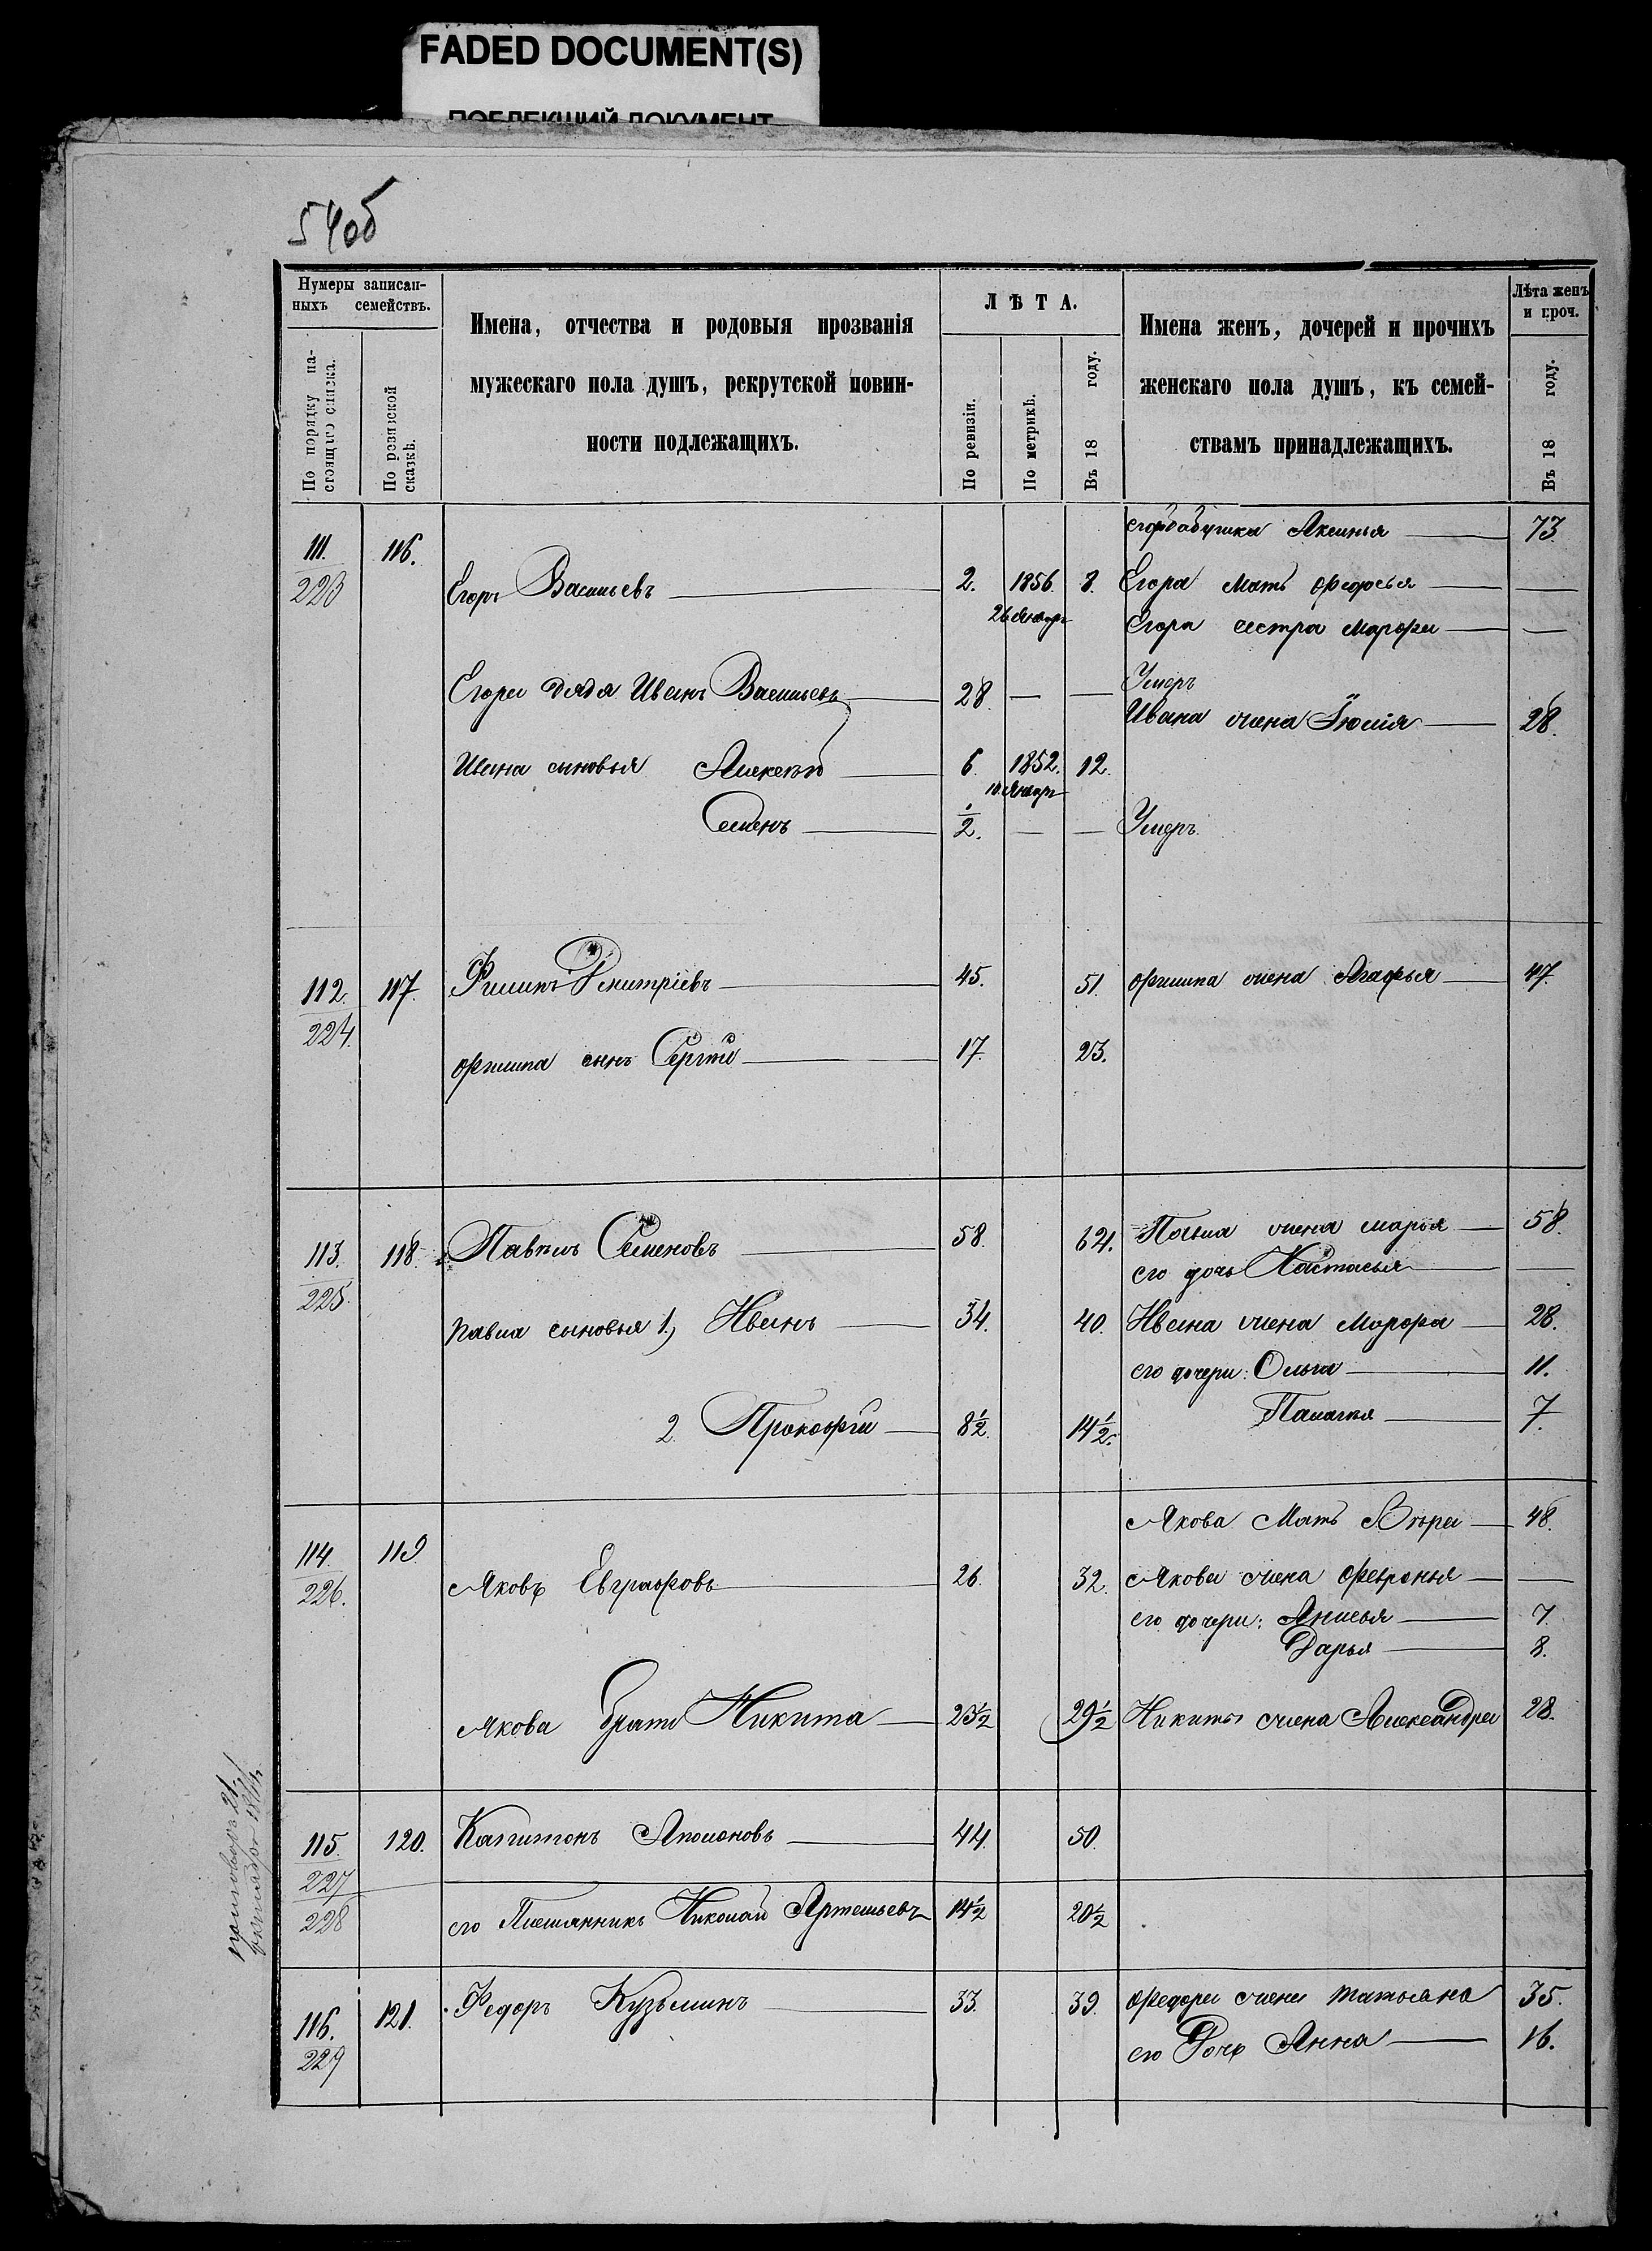 FADED DOCUMENT(S)
ПОБЛЕКШИЙ ДОКУМЕНТ
54об
Нумеры записан-
ныхъ семействъ.
По порядку на-
стоящаго списка.
По ревизской
сказкѣ.
Имена, отчества и родовыя прозванія
мужескаго пола душъ, рекрутской повин-
ности подлежащихъ.
ЛѢТА.
По ревизіи.
По метрикѣ.
Въ 18 году.
Имена женъ, дочерей и прочихъ
женскаго пола душъ, къ семей-
ствамъ принадлежащихъ.
Лѣта женъ
и проч.
Въ 18 году.
бабушка Аксинья 73
111. 116.
223
Егоръ Васильевъ 2. 1856 8. Егора мать Федосья —
26 Январ Егора сестра Марфа —
Егора дядя Иванъ Васильевъ 28 — — Умеръ
Ивана жена Юлія 28.
Ивана сыновья Алексѣй 6 1852. 12.
10 Январ
Семенъ 1/2. — — Умеръ.
112. 117. Филипъ Дмитріевъ 45. 51. Филипа жена Агафья 47.
224.
Филипа сынъ Сергѣй 17. 23.
113. 118. Павилъ Семеновъ 58. 64. Павла жена Марья 58
его дочь Настасья —
225.
Павла сыновья 1, Иванъ 34. 40. Ивана жена Марфа 28.
его дочери: Ольга 11.
2. Прокофій 8 1/2. 14 1/2. Палагея 7.
Якова Мать Вѣра 48.
114. 119
226.
Яковъ Евграфовъ 26. 32. Якова жена Февронья —
его дочери: Анисья 7.
Дарья 8.
Якова братъ Никита 23 1/2 29 1/2 Никиты жена Александра 28.
115. 120. Капитонъ Аполоновъ 44. 50.
227
228
его Племянникъ Николай Артемьевъ 14 1/2 20 1/2
116. 121. Федоръ Кузьминъ 33. 39. Федора жена Татьяна 35.
229
его Дочь Анна 16.
приговоръ 21